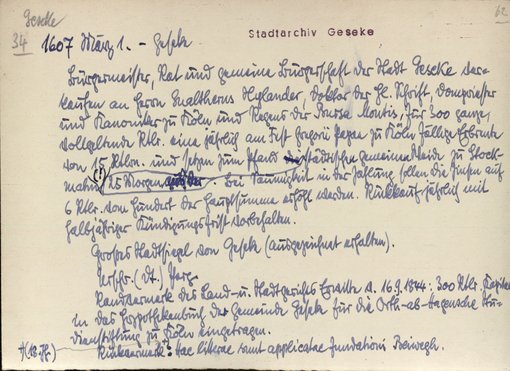 Geseke
62
34
Stadtarchiv Geseke
1607 März 1. - Geseke
Bürgermeister, Rat und gemeine Bürgerschaft der Stadt Geseke ver-
kaufen an Herrn Gualtherus Hylander, Doktor der Hl. Schrift, Dompriester
und Kanoniker zu Köln und Regens der Bursa Montis, für 300 ganze,
vollgeltende Rtlr. eine jährlich am Fest Gregorii Papae zu Köln fällige Erbrente
von 15 Rtlrn. und setzen zum Pfand die städtische gemeine Weide zu Stock-
(?) 25 Morgen. Bei Säumigkeit in der Zahlung sollen die Zinsen auf
6 Rtlr. vom Hundert der Hauptsumme erhöht werden. Rückkauf jährlich mit
halbjähriger Kündigungsfrist vorbehalten.
Großes Stadtsiegel von Geseke (ausgezeichnet erhalten).
(dt.) Perg.
Randvermerk des Land- u. Stadtgerichts Erwitte d. 16.9.1844: 300 Rtlr. Kapital
in das Hypothekenbuch der Gemeinde Geseke für die Orth-ab-Hagensche Stu-
dienstiftung zu Köln eingetragen.
Rückvermerk: Hae literae sunt applicatae fundationi